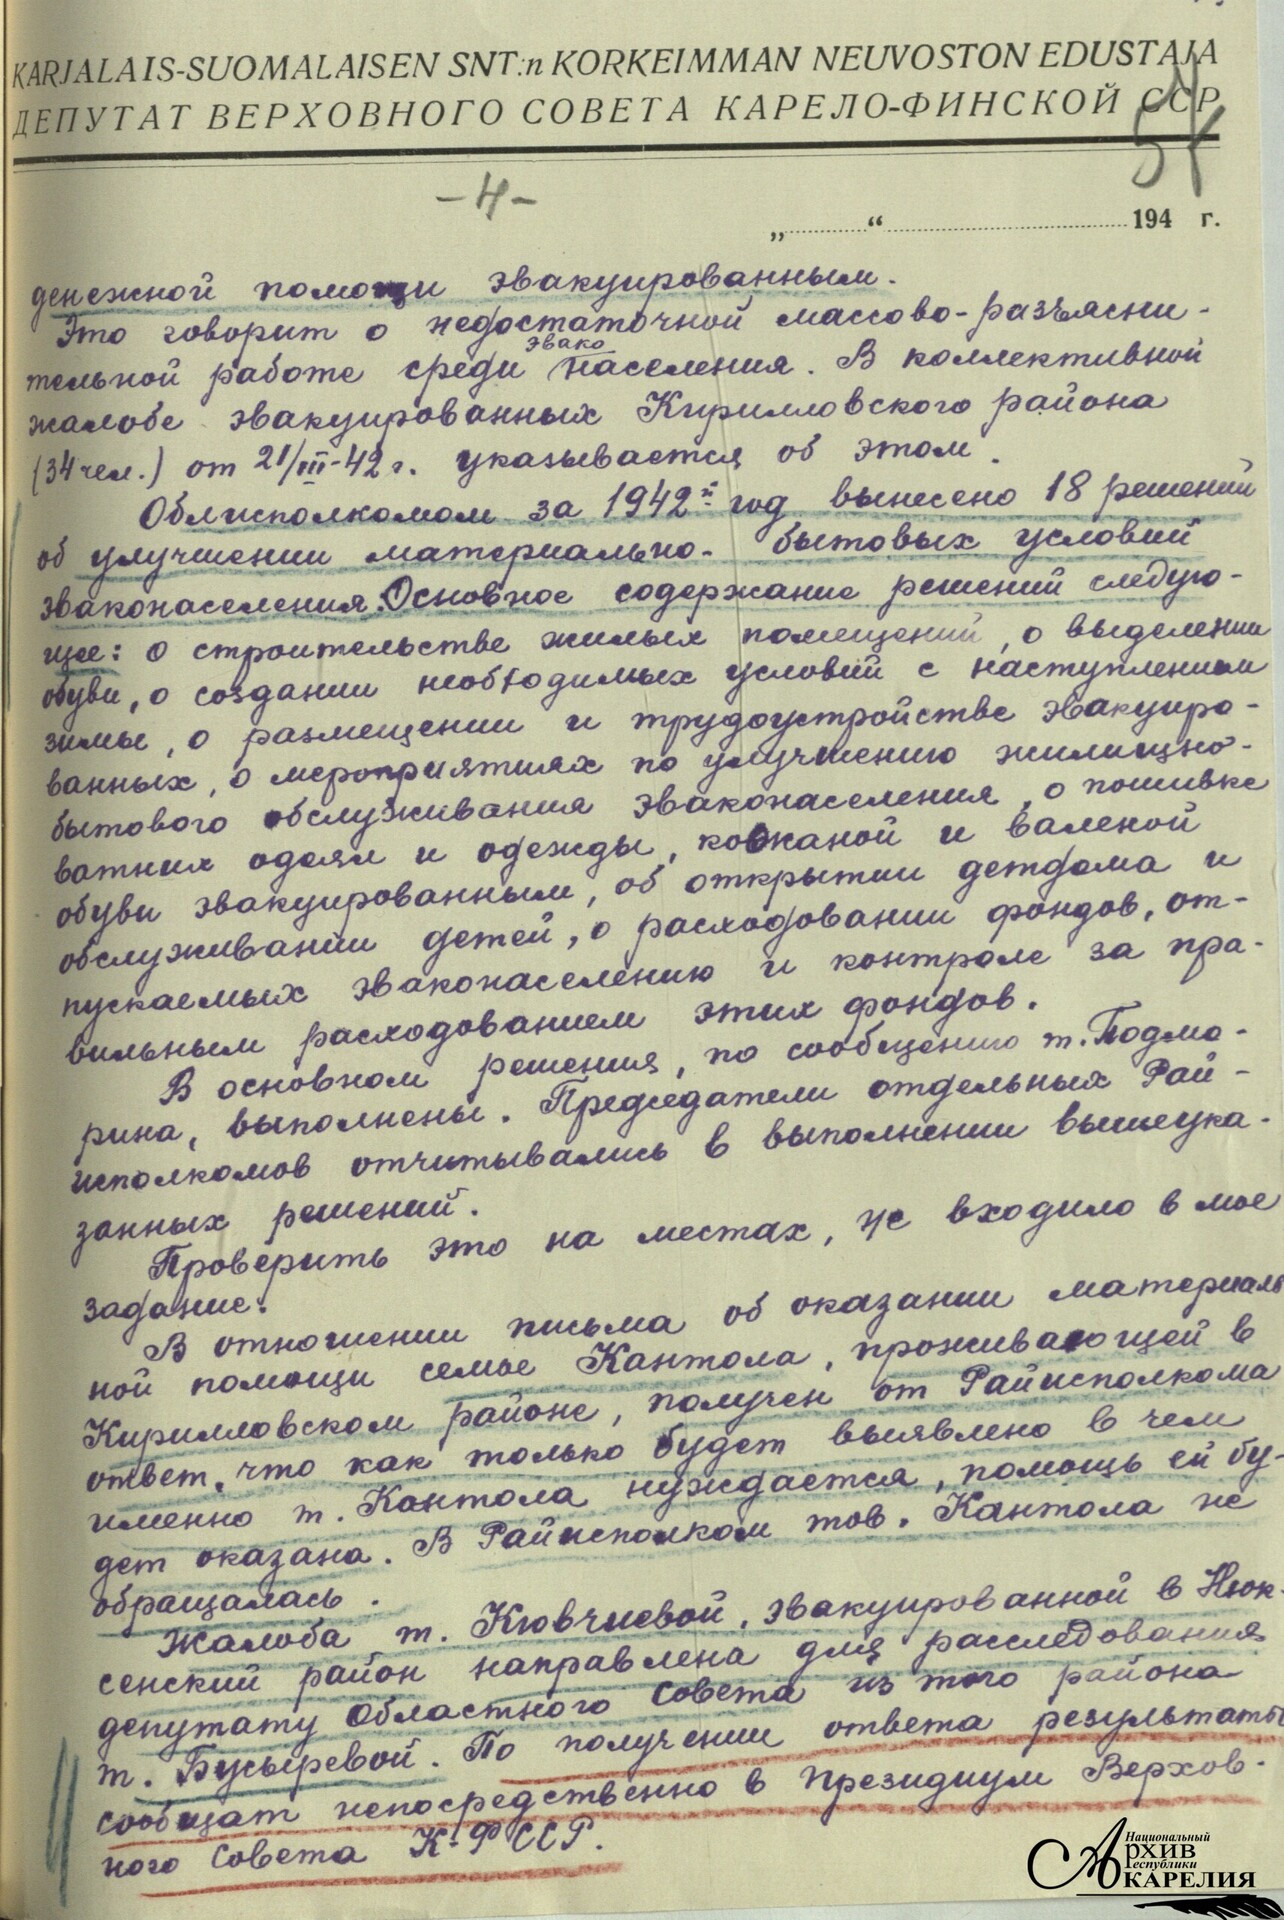 KARJALAIS-SUOMALAISEN SNT:n KORKEIMMAN NEUVOSTON EDUSTAJA
ДЕПУТАТ ВЕРХОВНОГО СОВЕТА КАРЕЛО-ФИНСКОЙ ССР
54
-4-
„ “ 194 г.
денежной помощи эвакуированным.
Это говорит о недостаточной массово-разъясни-
эвако
тельной работе среди населения. В коллективной
жалобе эвакуированных Кирилловского района
(34 чел.) от 21/III-42 г. указывается об этом.
Облисполкомом за 1942й год вынесено 18 решений
об улучшении материально-бытовых условий
эваконаселения. Основное содержание решений следую-
щее: о строительстве жилых помещений, о выделении
обуви, о создании необходимых условий с наступлением
зимы, о размещении и трудоустройстве эвакуиро-
ванных, о мероприятиях по улучшению жилищно-
бытового обслуживания эваконаселения, о пошивке
ватних одеял и одежды, кожаной и валеной
обуви эвакуированным, об открытии детдома и
обслуживании детей, о расходовании фондов, от-
пускаемых эваконаселению и контроле за пра-
вильным расходованием этих фондов.
В основном решения, по сообщению т. Подмо-
рина, выполнены. Председатели отдельных Рай-
исполкомов отчитывались в выполнении вышеука-
занных решений.
Проверить это на местах, не входило в мое
задание.
В отношении письма об оказании материаль
ной помощи семье Кантола, проживающей в
Кирилловском районе, получен от Райисполкома
ответ, что как только будет выявлено в чем
именно т. Кантола нуждается, помощь ей бу-
дет оказана. В Райисполком тов. Кантола не
обращалась.
Жалоба т. Кювчиевой, эвакуированной в Нюк-
сенский район направлена для расследования
депутату Областного Совета из того района
т. Бусыревой. По получении ответа результаты
сообщат непосредственно в Президиум Верхов-
ного Совета К-ФССР.
Национальный
АРХИВ
Республики
КАРЕЛИЯ